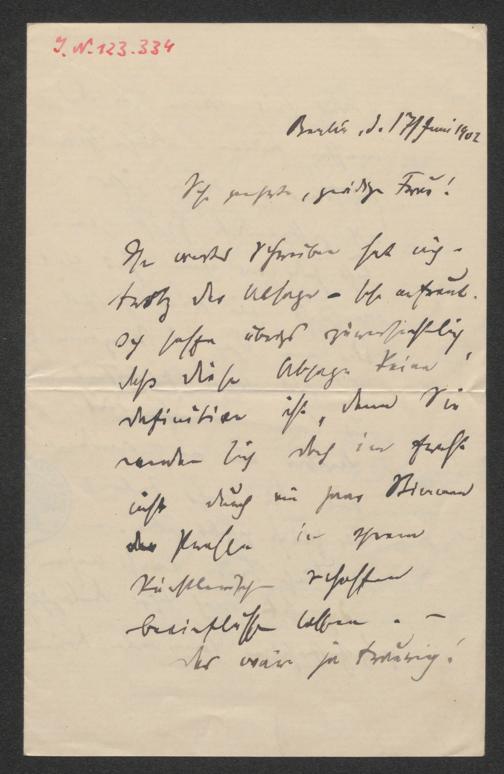 I. N. 123.334
Berlin, d. 17/Juni 1902
Sehr geehrte, gnädige Frau!
Ihr wertes Schreiben hat mich -
trotz der Absage - sehr erfreut.
Ich hoffe übrigs zuversichtlich,
daß diese Absage keine
definitive ist, denn Sie
werden sich doch im Ernst
nicht durch ein paar Stimmen
der Presse in Ihrem
künstlerischen Schaffen
beeinflussen lassen. -
Das wäre ja traurig!